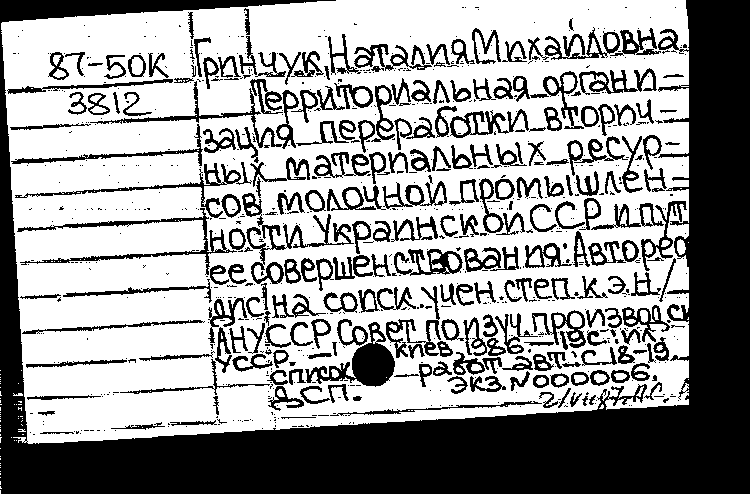 87-50К Гринчук, Наталия Михайловна.
3812 Территориальная органи-
зация переработки вторич-
ных материальных ресур-
сов молочной промышлен-
ности Украинской ССР и пут
ее совершенствования: Автореф
дис на соиск. учен. степ. к.э.н. /
АН УССР, Совет по изуч. производ. си
УССР. — Киев, 1986. — 19с.: ил.,
Список работ авт.: с 18-19.
ДСП. Экз. N 000006.